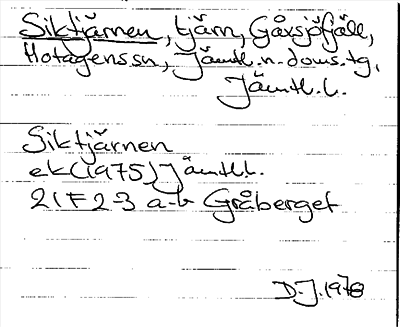 Siktjärnen, tjärn, Gåxsjöfjäll,
Hotagens sn, Jämtl. n. doms.tg,
Jämtl. l.
Siktjärnen
ek (1975) Jämtl.
21F 2-3 a-b Gråberget
D.J. 1978